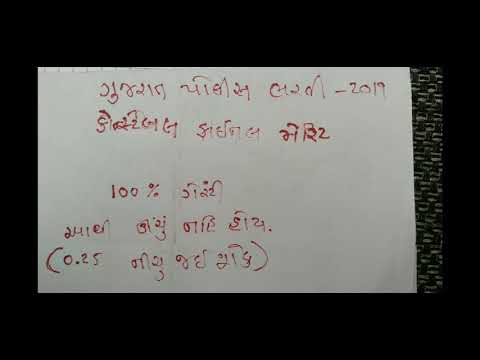 ગુજરાત પોલીસ ભરતી - 2019
કોન્સ્ટેબલ ફાઈનલ મેરિટ
100 % ગેરંટી
આથી ઊંચું નહિ હોય.
(0.25 નીચુ જઈ શકે)